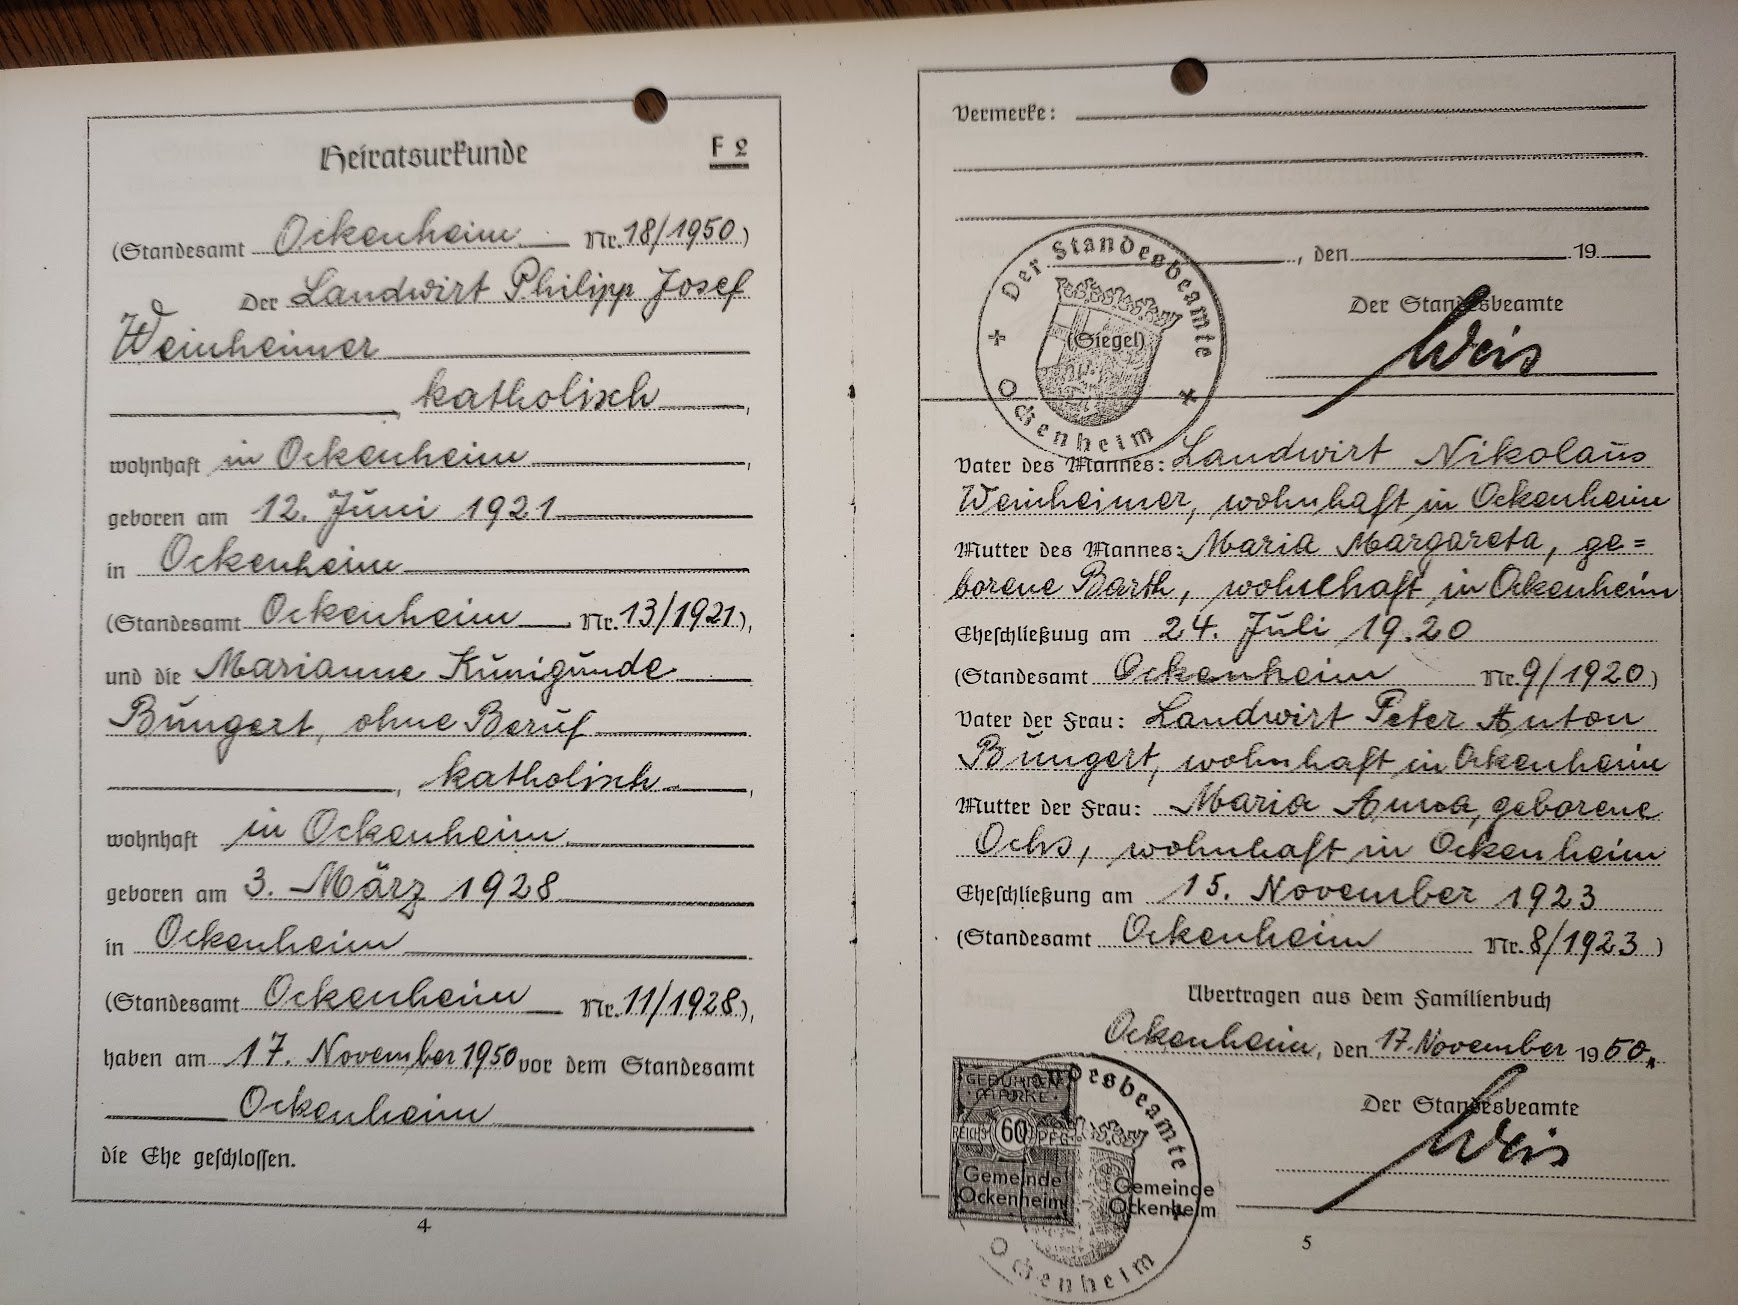 Heiratsurkunde F 2
(Standesamt Ockenheim Nr. 18/1950.)
Der Landwirt Philipp Josef
Weinheimer
, katholisch,
wohnhaft in Ockenheim,
geboren am 12. Juni 1921
in Ockenheim
(Standesamt Ockenheim Nr. 13/1921),
und die Marianne Kunigunde
Bungert, ohne Beruf
, katholisch,
wohnhaft in Ockenheim
geboren am 3. März 1928
in Ockenheim
(Standesamt Ockenheim Nr. 11/1928),
haben am 17. November 1950 vor dem Standesamt
Ockenheim
die Ehe geschlossen.
4
Vermerke:
, den 19
Der Standesbeamte
Weis
Der Standesbeamte
(Siegel)
Ockenheim
Vater des Mannes: Landwirt Nikolaus
Weinheimer, wohnhaft in Ockenheim
Mutter des Mannes: Maria Margareta, ge=
borene Barth, wohnhaft in Ockenheim
Eheschließung am 24. Juli 19.20
(Standesamt Ockenheim Nr. 9/1920)
Vater der Frau: Landwirt Peter Anton
Bungert, wohnhaft in Ockenheim
Mutter der Frau: Maria Anna, geborene
Ochs, wohnhaft in Ockenheim
Eheschließung am 15. November 1923
(Standesamt Ockenheim Nr. 8/1923)
Übertragen aus dem Familienbuch
Ockenheim, den 17. November 1950.
Der Standesbeamte
Weis
GEBÜHREN
MARKE
REICHS 60 PFG
Gemeinde
Ockenheim
Gemeinde
Ockenheim
andesbeamte
Ockenheim
5